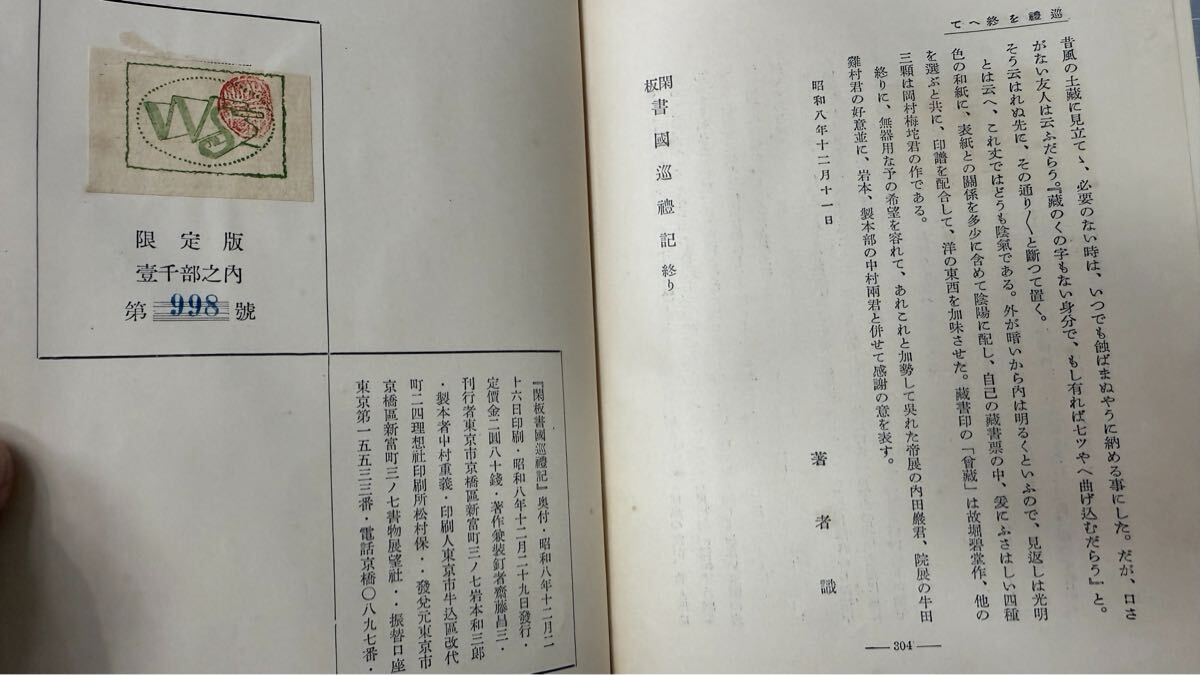 巡禮を終へて
昔風の土藏に見立てゝ、必要のない時は、いつでも蝕ばまぬやうに納める事にした。だが、口さ
がない友人は云ふだらう。『藏のくの字もない身分で、もし有れば七ツやへ曲げ込むだらう』と。
そう云はれぬ先に、その通り〳〵と斷つて置く。
とは云へ、これ丈ではどうも陰氣である。外が暗いから內は明るくといふので、見返しは光明
色の和紙に、表紙との關係を多少に含めて陰陽に配し、自己の藏書票の中、爰にふさはしい四種
を選ぶと共に、印譜を配合して、洋の東西を加味させた。藏書印の「曾藏」は故堀碧堂作、他の
三顆は岡村梅坨君の作である。
終りに、無器用な予の希望を容れて、あれこれと加勢して吳れた帝展の內田巖君、院展の牛田
雞村君の好意並に、岩本、製本部の中村兩君と併せて感謝の意を表す。
昭和八年十二月十一日
著者識
閑板書國巡禮記 終り
304
WS
限定版
壹千部之內
第998號
『閑板書國巡禮記』奧付・昭和八年十二月二
十六日印刷・昭和八年十二月二十九日發行・
定價金二圓八十錢・著作兼裝釘者齋藤昌三・
刊行者東京市京橋區新富町三ノ七岩本和三郎
・製本者中村重義・印刷人東京市牛込區改代
町二四理想社印刷所松村保・・發兌元東京市
京橋區新富町三ノ七書物展望社・・振替口座
東京第一五五三三番・電話京橋〇八九七番・